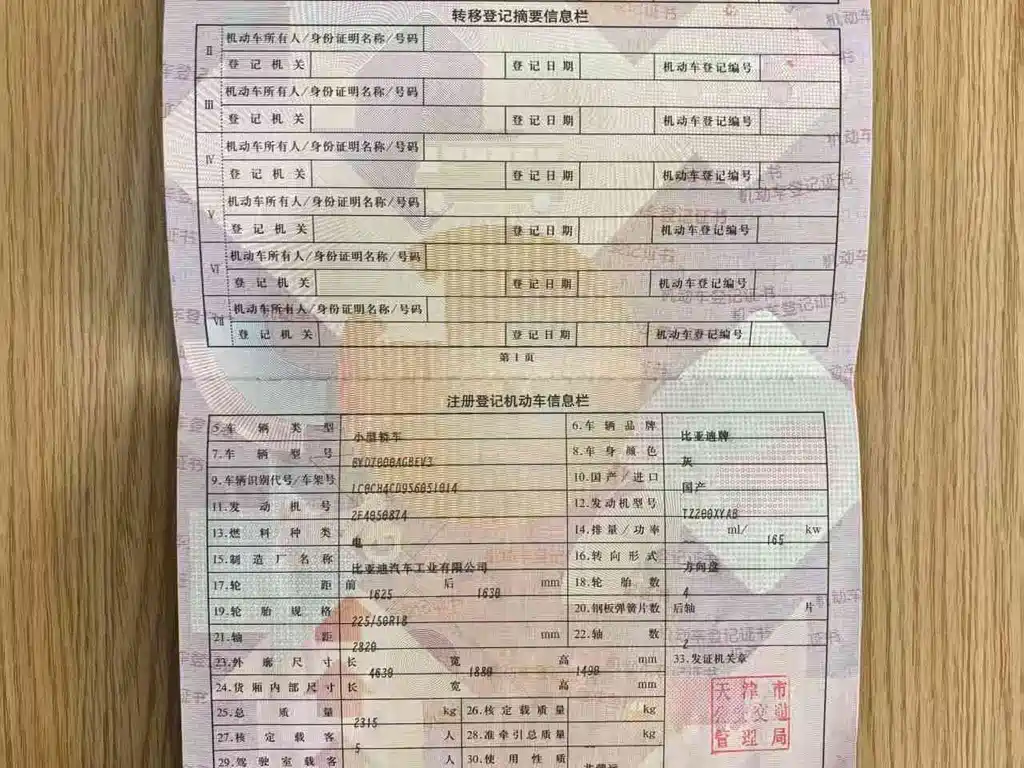 转移登记摘要信息栏
Ⅱ 机动车所有人/身份证明名称/号码
登记机关 登记日期 机动车登记编号
Ⅲ 机动车所有人/身份证明名称/号码
登记机关 登记日期 机动车登记编号
Ⅳ 机动车所有人/身份证明名称/号码
登记机关 登记日期 机动车登记编号
Ⅴ 机动车所有人/身份证明名称/号码
登记机关 登记日期 机动车登记编号
Ⅵ 机动车所有人/身份证明名称/号码
登记机关 登记日期 机动车登记编号
Ⅶ 机动车所有人/身份证明名称/号码
登记机关 登记日期 机动车登记编号
第1页
注册登记机动车信息栏
5.车辆类型 小型轿车 6.车辆品牌 比亚迪牌
7.车辆型号 8.车身颜色 灰
9.车辆识别代号/车架号 10.国产/进口 国产
11.发动机号 2F4050874 12.发动机型号 TZ200XYAB
13.燃料种类 电 14.排量/功率 ml/ 165 kw
15.制造厂名称 比亚迪汽车工业有限公司 16.转向形式 方向盘
17.轮距 前 1625 后 1630 mm 18.轮胎数 4
19.轮胎规格 225/50R18 20.钢板弹簧片数 后轴 片
21.轴距 2820 mm 22.轴数 2
23.外廓尺寸 长 4630 宽 1880 高 1490 mm 33.发证机关章
24.货厢内部尺寸 长 宽 高 mm
25.总质量 2315 kg 26.核定载质量 kg
27.核定载客 5 人 28.准牵引总质量 kg
29.驾驶室载客 人 30.使用性质
天津市
公安交通
管理局